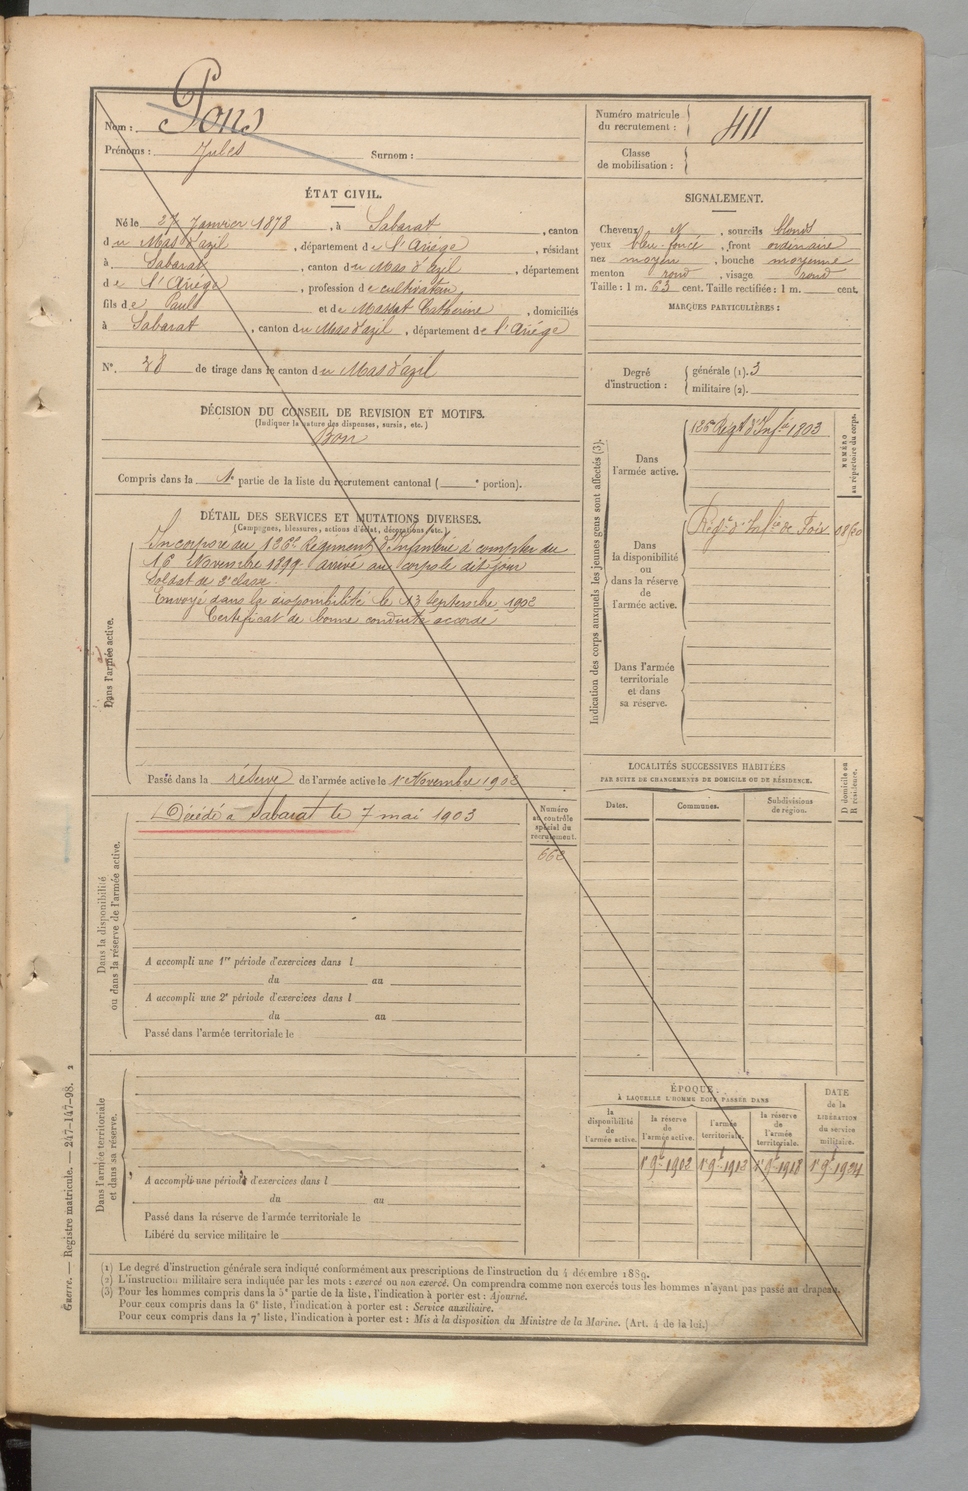 Nom : Pons
Prénoms : Jules Surnom :
Numéro matricule du recrutement : 411
Classe de mobilisation :
ÉTAT CIVIL.
Né le 27 Janvier 1878, à Sabarat, canton
du Mas d'azil, département de l'Ariége, résidant
à Sabarat, canton du Mas d'azil, département
de l'Ariége, profession de cultivateur,
fils de Paul et de Massat Catherine, domiciliés
à Sabarat, canton du Mas d'azil, département de l'Ariége
N°. 28 de tirage dans le canton du Mas d'azil
SIGNALEMENT.
Cheveux N, sourcils blonds
yeux bleu-foncé, front ordinaire
nez moyen, bouche moyenne
menton rond, visage rond
Taille : 1 m. 63 cent. Taille rectifiée : 1 m. cent.
MARQUES PARTICULIÈRES :
Degré d'instruction :
générale (1). 3
militaire (2).
DÉCISION DU CONSEIL DE REVISION ET MOTIFS.
(Indiquer la nature des dispenses, sursis, etc.)
Bon
Compris dans la 1e partie de la liste du recrutement cantonal ( e portion).
DÉTAIL DES SERVICES ET MUTATIONS DIVERSES.
(Campagnes, blessures, actions d'éclat, décorations, etc.)
Dans l'armée active.
Incorporé au 126e Régiment d'Infanterie à compter du
16 Novembre 1899 arrivé au corps le dit jour
Soldat de 2e classe.
Envoyé dans la disponibilité le 13 Septembre 1902
Certificat de bonne conduite accordé
Passé dans la réserve de l'armée active le 1er Novembre 1902
Indication des corps auxquels les jeunes gens sont affectés (3).
NUMÉRO au répertoire du corps.
Dans l'armée active.
126e Regt d'Infie 1803
Dans la disponibilité ou dans la réserve de l'armée active.
Régt d'Infie de Foix
Dans l'armée territoriale et dans sa réserve.
LOCALITÉS SUCCESSIVES HABITÉES
PAR SUITE DE CHANGEMENTS DE DOMICILE OU DE RÉSIDENCE.
D domicile ou R résidence.
Dates. Communes. Subdivisions de région.
Dans la disponibilité ou dans la réserve de l'armée active.
Décédé à Sabarat le 7 mai 1903
Numéro au contrôle spécial du recrutement.
662
A accompli une 1re période d'exercices dans l
du au
A accompli une 2e période d'exercices dans l
du au
Passé dans l'armée territoriale le
Dans l'armée territoriale et dans sa réserve.
A accompli une période d'exercices dans l
du au
Passé dans la réserve de l'armée territoriale le
Libéré du service militaire le
ÉPOQUE
À LAQUELLE L'HOMME DOIT PASSER DANS
la disponibilité de l'armée active.
la réserve de l'armée active.
l'armée territoriale.
la réserve de l'armée territoriale.
DATE de la LIBÉRATION du service militaire.
1er 9bre 1902 1er 9bre 1912 1er 9bre 1918 1er 9bre 1924
(1) Le degré d'instruction générale sera indiqué conformément aux prescriptions de l'instruction du 4 décembre 1889.
(2) L'instruction militaire sera indiquée par les mots : exercé ou non exercé. On comprendra comme non exercés tous les hommes n'ayant pas passé au drapeau.
(3) Pour les hommes compris dans la 5e partie de la liste, l'indication à porter est : Ajourné.
Pour ceux compris dans la 6e liste, l'indication à porter est : Service auxiliaire.
Pour ceux compris dans la 7e liste, l'indication à porter est : Mis à la disposition du Ministre de la Marine. (Art. 4 de la loi.)
Guerre. — Registre matricule. — 247-147-98. 2